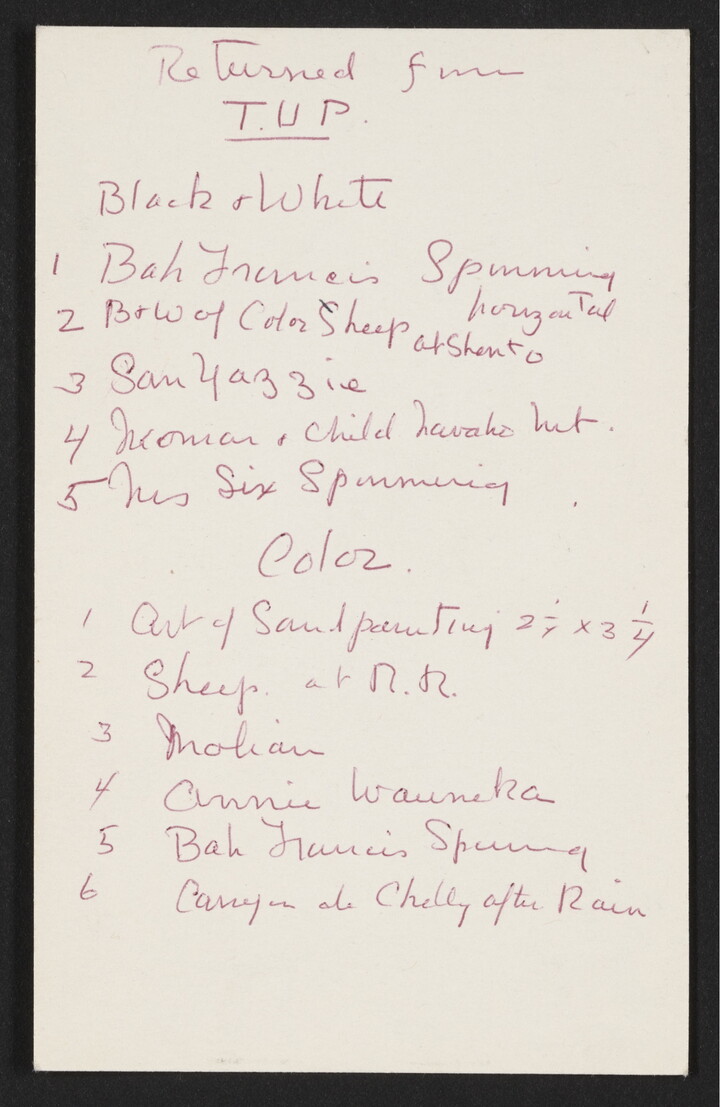 Returned from
T.U P.
Black & White
1 Bah Francis Spinning
horizontal
2 B&W of Color Sheep at Shonto
3 Sam Yazzie
4 Woman & Child Navaho Mt.
5 Mrs Six Spinning
Color.
1 Art of Sandpainting 2 1/4 x 3 1/4
2 Sheep. at R.R.
3
4 Annie Wauneka
5 Bah Francis Spinning
6 Canyon de Chelly after Rain